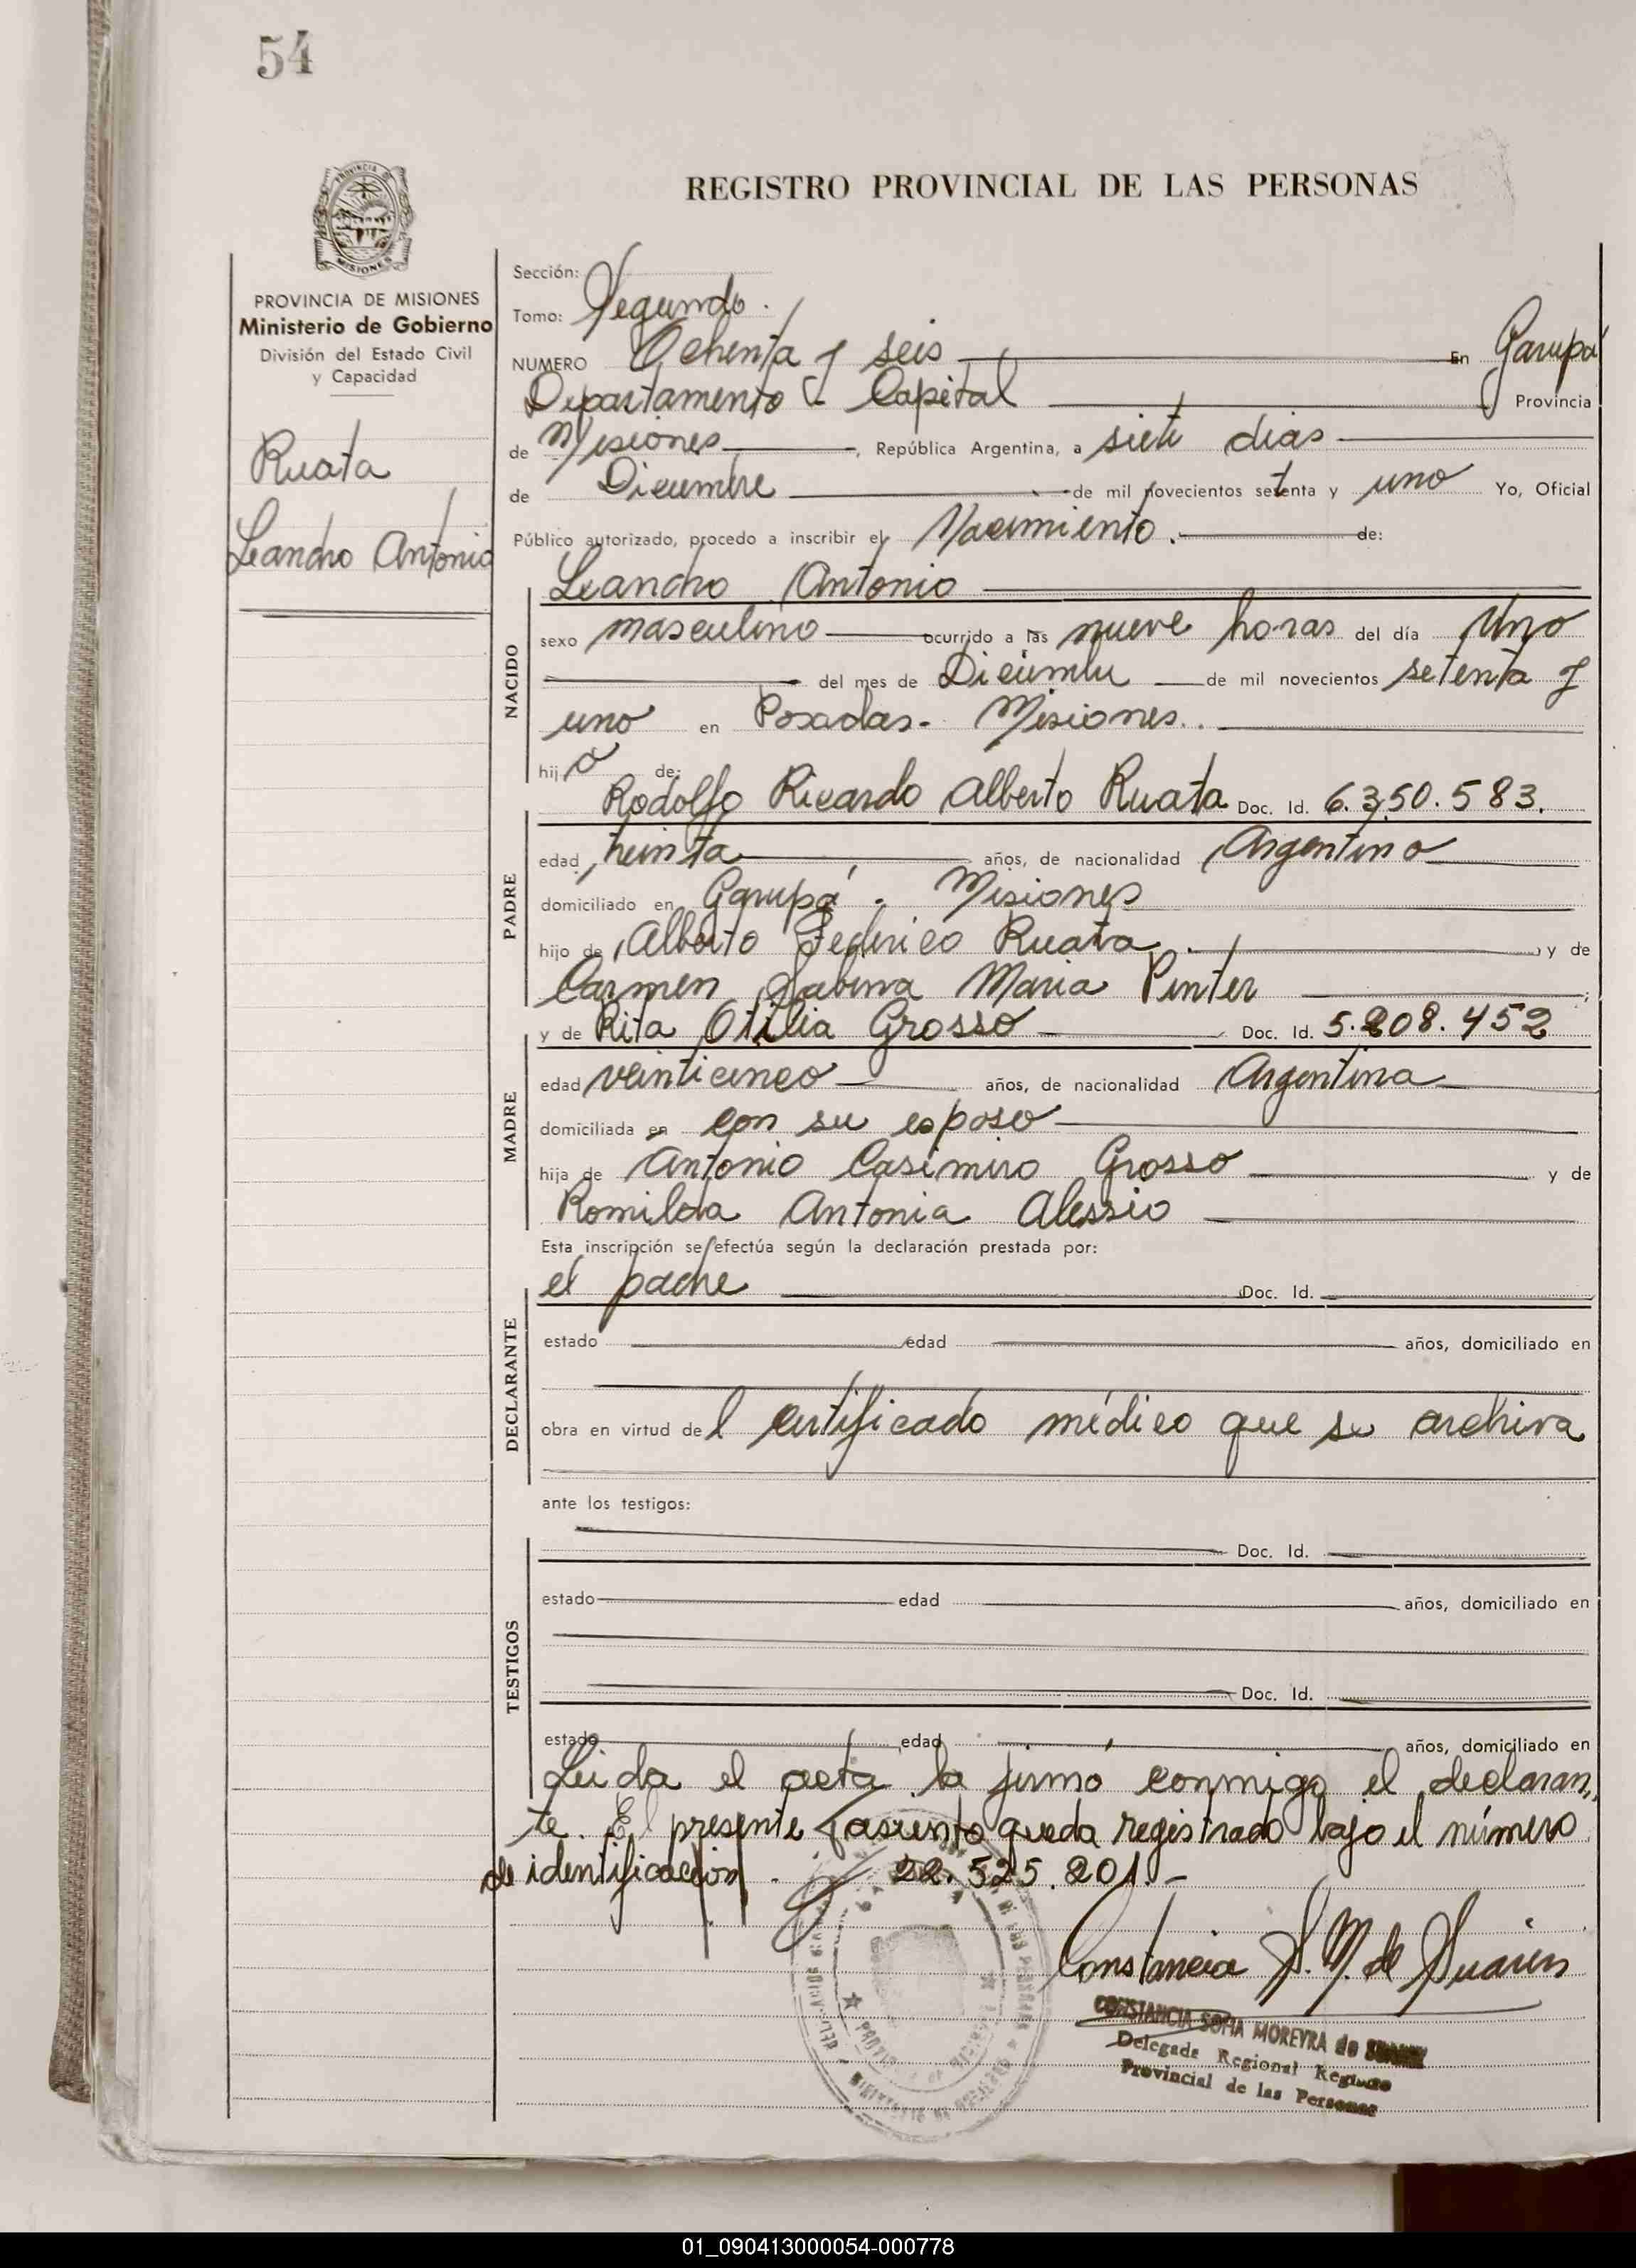 54
REGISTRO PROVINCIAL DE LAS PERSONAS
PROVINCIA DE
MISIONES
PROVINCIA DE MISIONES
Ministerio de Gobierno
División del Estado Civil
y Capacidad
Ruata
Leandro Antonio
Sección:
Tomo: Segundo.
NUMERO Ochenta y seis En Garupá
Departamento - Capital Provincia
de Misiones, República Argentina, a siete dias
de Diciembre de mil novecientos setenta y uno Yo, Oficial
Público autorizado, procedo a inscribir el Nacimiento. de:
Leandro Antonio
NACIDO
sexo masculino ocurrido a las nueve horas del día Uno
del mes de Diciembre de mil novecientos setenta y
uno en Posadas - Misiones.
hijo de:
Rodolfo Ricardo Alberto Ruata Doc. Id. 6.350.583.
PADRE
edad, treinta años, de nacionalidad Argentino
domiciliado en Garupá. Misiones
hijo de Alberto Federico Ruata. y de
Carmen Sabina Maria Pinter ;
MADRE
y de Rita Otilia Grosso Doc. Id. 5.208.452
edad veinticinco años, de nacionalidad Argentina
domiciliada en con su esposo
hija de Antonio Casimiro Grosso y de
Romilda Antonia Alessio
Esta inscripción se efectúa según la declaración prestada por:
DECLARANTE
el padre Doc. Id.
estado edad años, domiciliado en
obra en virtud del certificado médico que se archiva
ante los testigos:
TESTIGOS
Doc. Id.
estado edad años, domiciliado en
Doc. Id.
estado edad años, domiciliado en
Leida el acta la firmó conmigo el declaran,
te. El presente asiento queda registrado bajo el número
de identificación. 22.525.201.-
Constancia S. M. de Suárez
CONSTANCIA SOFIA MOREYRA de SUAREZ
Delegada Regional Registro
Provincial de las Personas
01_090413000054-000778